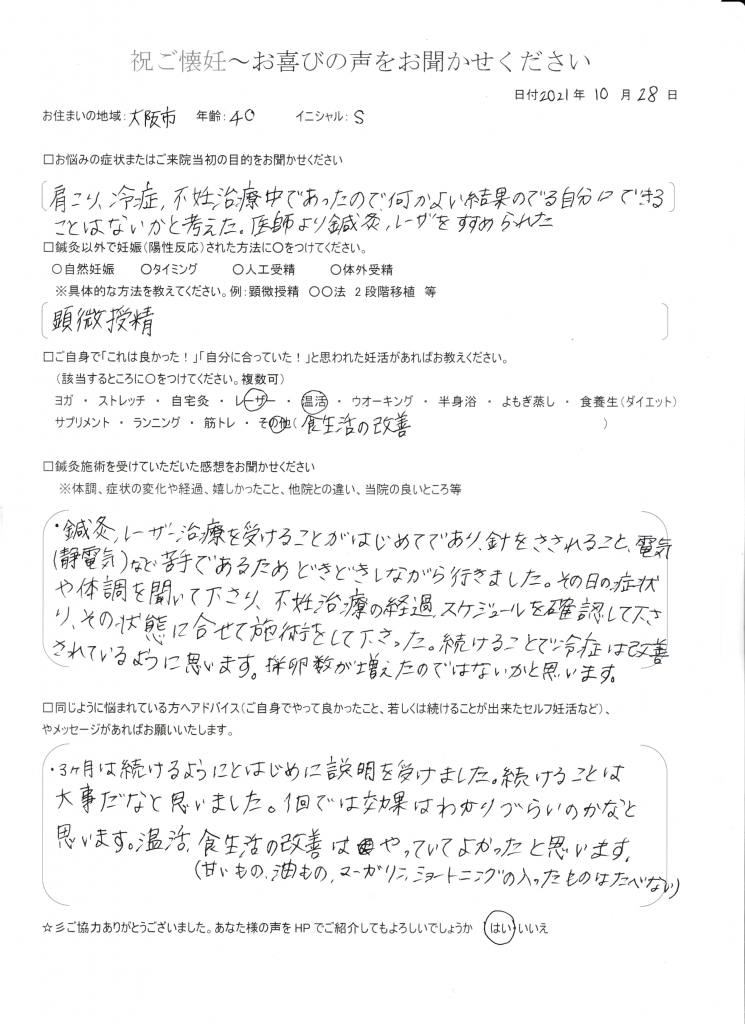 祝ご懐妊～お喜びの声をお聞かせください
日付2021年 10 月 28 日
お住まいの地域：大阪市 年齢：40 イニシャル：S
□お悩みの症状またはご来院当初の目的をお聞かせください
肩こり、冷症、不妊治療中であったので何かよい結果のでる自分にできる
ことはないかと考えた。医師より鍼灸、レーザをすすめられた
□鍼灸以外で妊娠（陽性反応）された方法に〇をつけてください。
〇自然妊娠 〇タイミング 〇人工受精 〇体外受精
※具体的な方法を教えてください。例：顕微授精 〇〇法 2段階移植 等
顕微授精
□ご自身で「これは良かった！」「自分に合っていた！」と思われた妊活があればお教えください。
（該当するところに〇をつけてください。複数可）
ヨガ ・ ストレッチ ・ 自宅灸 ・ レーザー ・ 温活 ・ ウオーキング ・ 半身浴 ・ よもぎ蒸し ・ 食養生（ダイエット）
サプリメント ・ ランニング ・ 筋トレ ・ その他（食生活の改善 ）
□鍼灸施術を受けていただいた感想をお聞かせください
※体調、症状の変化や経過、嬉しかったこと、他院との違い、当院の良いところ等
・鍼灸、レーザー治療を受けることがはじめてであり、針をさされること、電気
（静電気）など苦手であるためどきどきしながら行きました。その日の症状
や体調を聞いて下さり、不妊治療の経過、スケジュールを確認して下さ
り、その状態に合せて施術をして下さった。続けることで冷症は改善
されているように思います。採卵数が増えたのではないかと思います。
□同じように悩まれている方へアドバイス（ご自身でやって良かったこと、若しくは続けることが出来たセルフ妊活など）、
やメッセージがあればお願いいたします。
・3ヶ月は続けるようにとはじめに説明を受けました。続けることは
大事だなと思いました。1回では効果はわかりづらいのかなと
思います。温活、食生活の改善はやっていてよかったと思います。
（甘いもの、油もの、マーガリン、ショートニングの入ったものはたべない）
☆彡ご協力ありがとうございました。あなた様の声をHPでご紹介してもよろしいでしょうか はい・いいえ